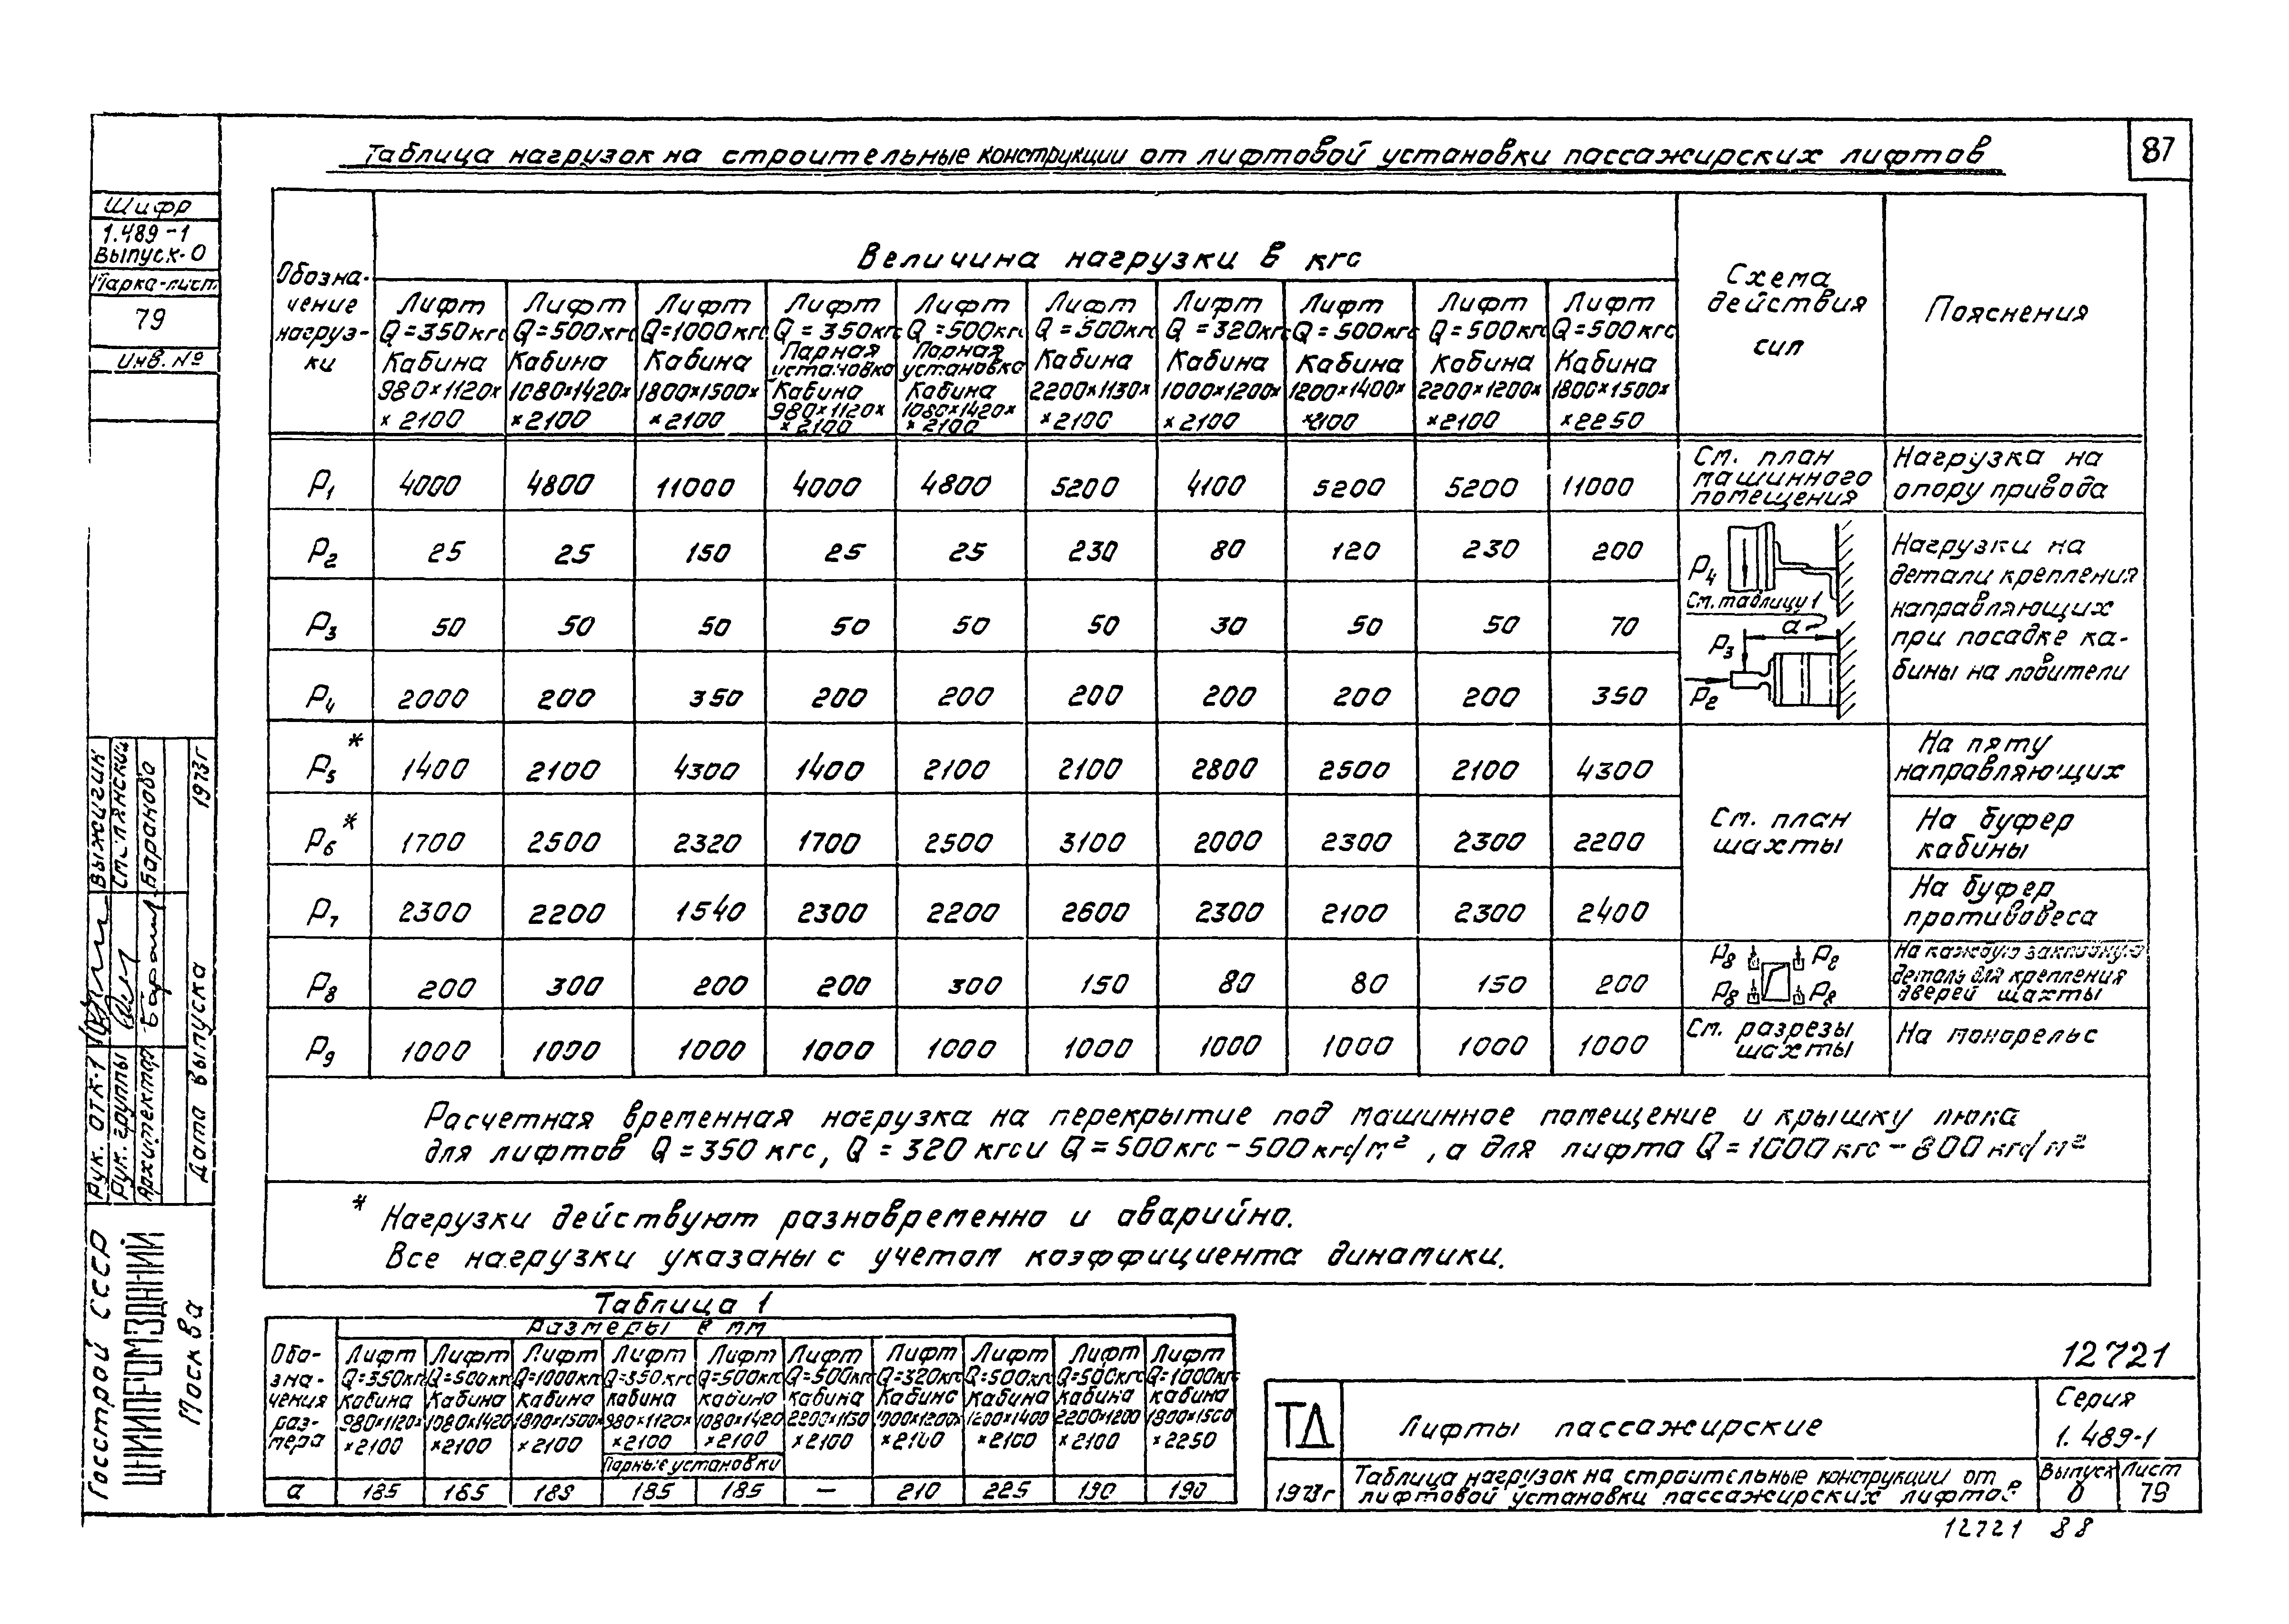 87
Таблица нагрузок на строительные конструкции от лифтовой установки пассажирских лифтов
Шифр
1.489-1
Выпуск-0
Марка-лист
79
Инв. №
Обозна-
чение
нагруз-
ки
Величина нагрузки в кгс
Схема
действия
сил
Пояснения
Лифт
Q=350кгс
Кабина
980×1120×
×2100
Лифт
Q=500кгс
Кабина
1080×1420×
×2100
Лифт
Q=1000кгс
Кабина
1800×1500×
×2100
Лифт
Q=350кгс
Парная
установка
Кабина
980×1120×
×2100
Лифт
Q=500кгс
Парная
установка
Кабина
1080×1420×
×2100
Лифт
Q=500кгс
Кабина
2200×1130×
×2100
Лифт
Q=320кгс
Кабина
1000×1200×
×2100
Лифт
Q=500кгс
Кабина
1200×1400×
×2100
Лифт
Q=500кгс
Кабина
2200×1200×
×2100
Лифт
Q=500кгс
Кабина
1800×1500×
×2250
P1 4000 4800 11000 4000 4800 5200 4100 5200 5200 11000
См. план
машинного
помещения
Нагрузка на
опору привода
P2 25 25 150 25 25 230 80 120 230 200
P3 50 50 50 50 50 50 30 50 50 70
P4 2000 200 350 200 200 200 200 200 200 350
P4
См. таблицу 1
a
P3
P2
Нагрузки на
детали крепления
направляющих
при посадке ка-
бины на ловители
P5* 1400 2100 4300 1400 2100 2100 2800 2500 2100 4300
На пяту
направляющих
P6* 1700 2500 2320 1700 2500 3100 2000 2300 2300 2200
См. план
шахты
На буфер
кабины
P7 2300 2200 1540 2300 2200 2600 2300 2100 2300 2400
На буфер
противовеса
P8 200 300 200 200 300 150 80 80 150 200
P8 P8
P8 P8
На каждую закладную
деталь для крепления
дверей шахты
P9 1000 1000 1000 1000 1000 1000 1000 1000 1000 1000
См. разрезы
шахты
На монорельс
Расчетная временная нагрузка на перекрытие под машинное помещение и крышку люка
для лифтов Q=350 кгс, Q=320 кгс и Q=500кгс-500кгс/м², а для лифта Q=1000кгс-800кгс/м²
* Нагрузки действуют разновременно и аварийно.
Все нагрузки указаны с учетом коэффициента динамики.
Таблица 1
Размеры в мм
Обо-
зна-
чения
раз-
мера
Лифт
Q=350кгс
Кабина
980×1120×
×2100
Лифт
Q=500кгс
Кабина
1080×1420
×2100
Лифт
Q=1000кгс
Кабина
1800×1500×
×2100
Лифт
Q=350кгс
кабина
980×1120×
×2100
Лифт
Q=500кгс
кабина
1080×1420
×2100
Парные установки
Лифт
Q=500кгс
кабина
2200×1130
×2100
Лифт
Q=320кгс
Кабина
1000×1200×
×2100
Лифт
Q=500кгс
Кабина
1200×1400
×2100
Лифт
Q=500кгс
кабина
2200×1200
×2100
Лифт
Q=1000кгс
кабина
1800×1500
×2250
a 185 165 189 185 185 — 210 225 190 190
12721
ТД
Лифты пассажирские
Серия
1.489-1
1973г
Таблица нагрузок на строительные конструкции от
лифтовой установки пассажирских лифтов
Выпуск
0
Лист
79
12721 88
Госстрой СССР
ЦНИИПРОМЗДАНИЙ
Москва
Рук. ОТК-1 Выжигин
Рук. группы
Архитектор Баранова
Дата выпуска 1973г